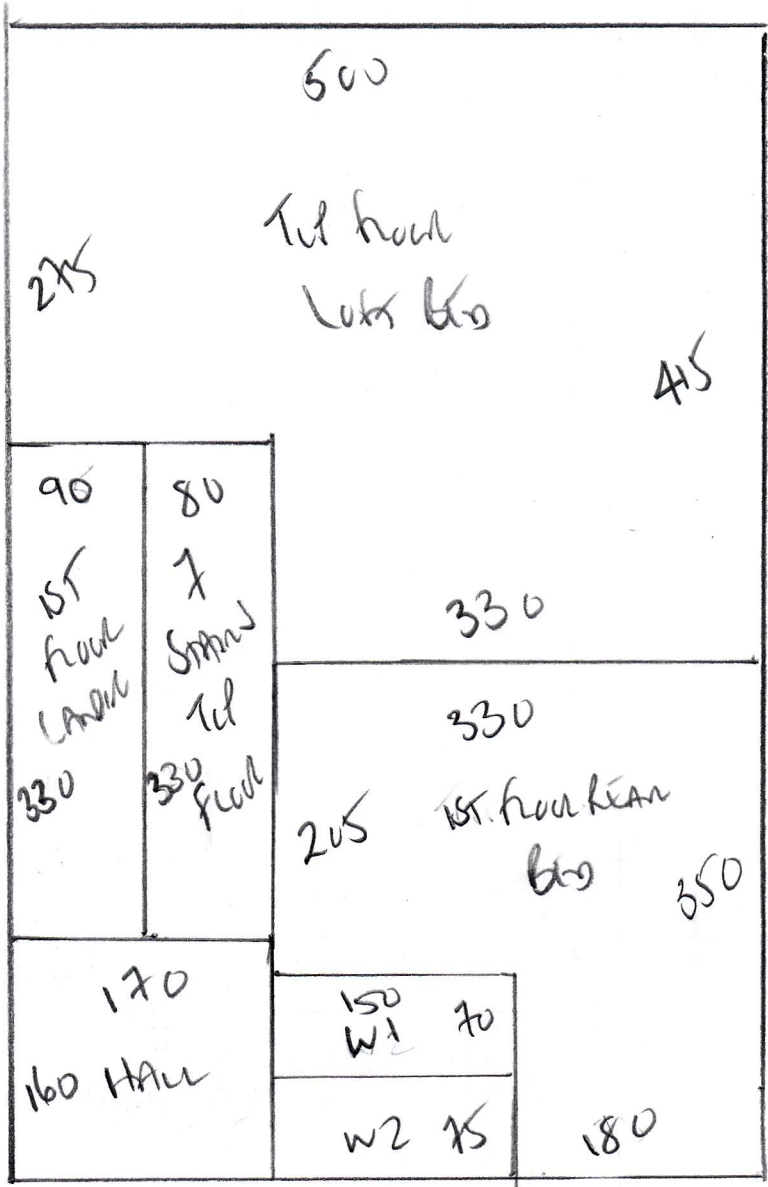 500
275
Top floor
Bed
415
90
1ST
floor
LANDIN
330
80
7
STAIRS
Top
330
Floor
330
330
205
1ST. floor REAR
Bed
350
170
160 HALL
150
W1 70
W2 75
180